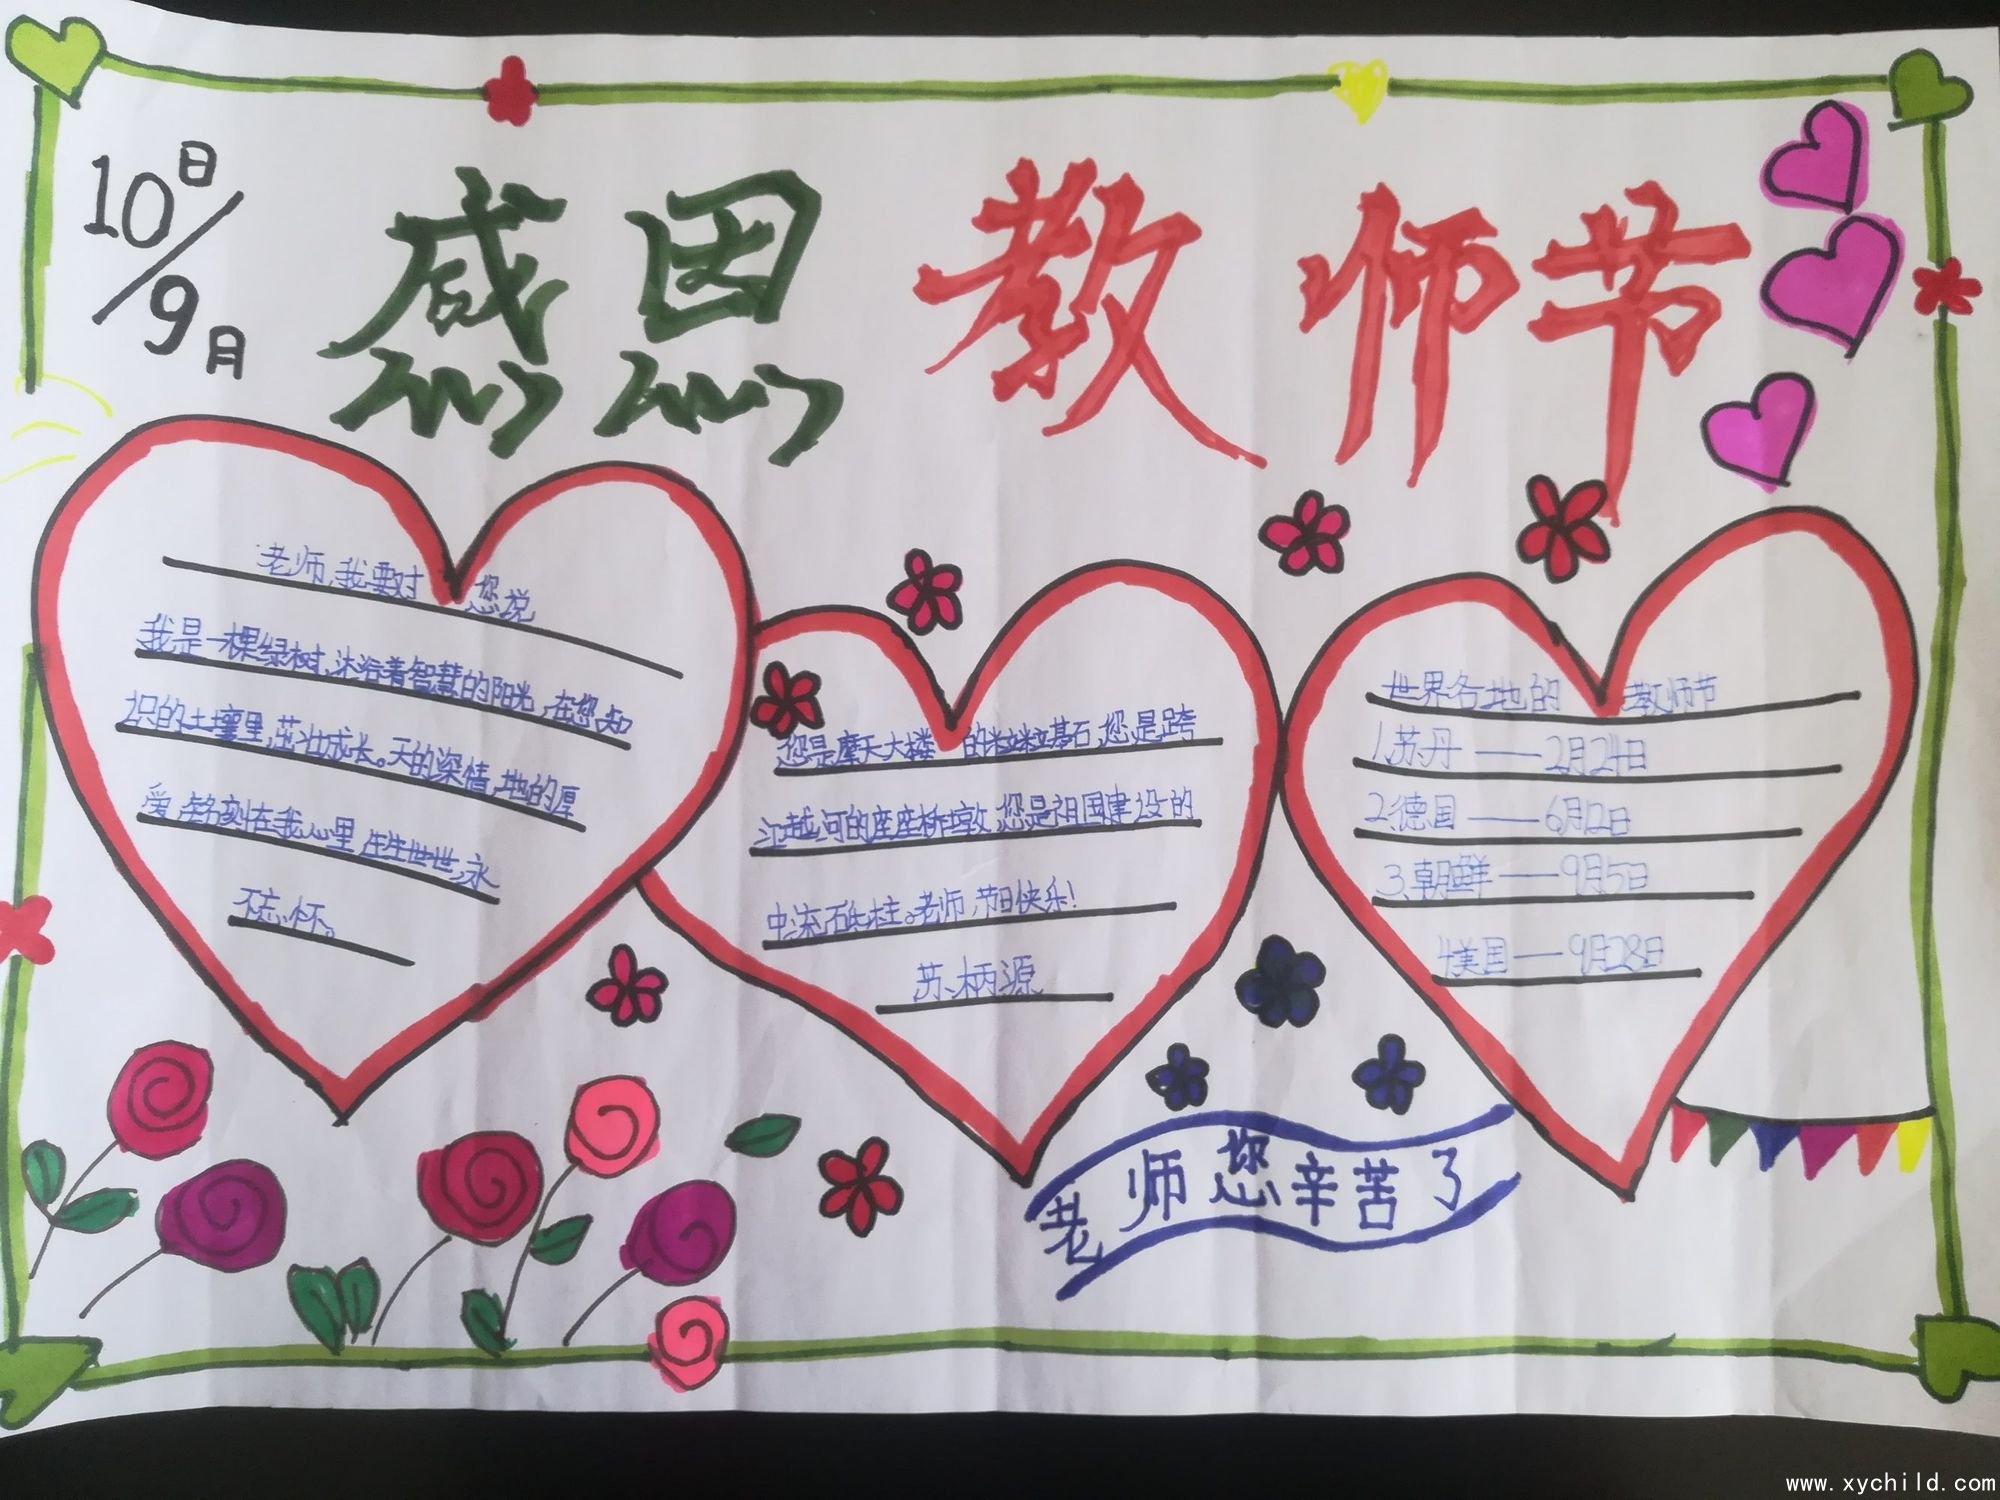 10日/9月
感恩教师节
老师,我要对您说
我是一棵绿树,沐浴着智慧的阳光,在您知
识的土壤里,茁壮成长。天的深情,地的厚
爱,铭刻在我心里,生生世世,永
不忘怀。
您是摩天大楼的粒粒基石,您是跨
江越河的座座桥墩,您是祖国建设的
中流砥柱。老师,节日快乐!
苏柄源
世界各地的教师节
1.苏丹——2月24日
2.德国——6月12日
3、朝鲜——9月5日
4美国——9月28日
老师您辛苦了
www.xychild.com